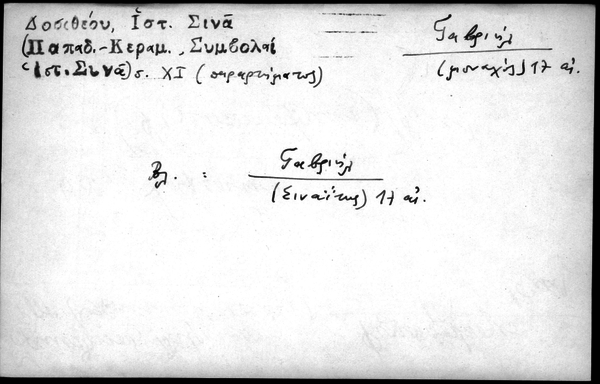 Δοσιθέου, Ἱστ. Σινᾶ
(Παπαδ.-Κεραμ., Συμβολαί
Ἱστ. Σινᾶ) σ. XI (παραρτήματος)
Γαβριήλ
(μοναχός) 17 αἰ.
Βλ. :
Γαβριήλ
(Σιναΐτης) 17 αἰ.